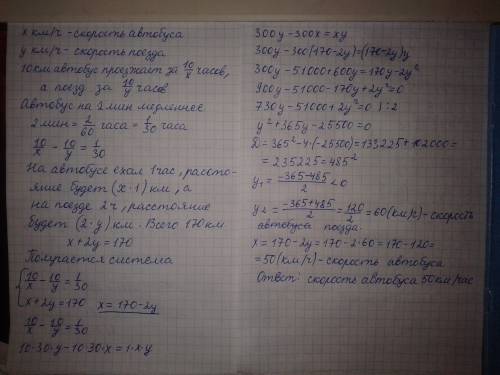 x км/ч - скорость автобуса
y км/ч - скорость поезда
10 км автобус проезжает за 10/x часов,
а поезд за 10/y часов
Автобус на 2 мин медленнее
2 мин = 2/60 часа = 1/30 часа
10/x - 10/y = 1/30
На автобусе ехал 1 час, рассто-
яние будет (x·1) км, а
на поезде 2 ч, расстояние
будет (2·y) км. Всего 170 км
x+2y=170
Получается система
{10/x - 10/y = 1/30
x+2y=170 x=170-2y
10/x - 10/y = 1/30
10·30·y-10·30·x=1·x·y
300y-300x=xy
300y-300(170-2y)=(170-2y)y
300y-51000+600y=170y-2y²
900y-51000-170y+2y²=0
730y-51000+2y²=0 |:2
y²+365y-25500=0
D=365²-4·(-25500)=133225+102000=
=235225=485²
y₁=(-365-485)/2<0
y₂=(-365+485)/2=120/2=60(км/ч)-скорость
автобуса поезда.
x=170-2y=170-2·60=170-120=
=50(км/ч)-скорость автобуса
Ответ: скорость автобуса 50км/час